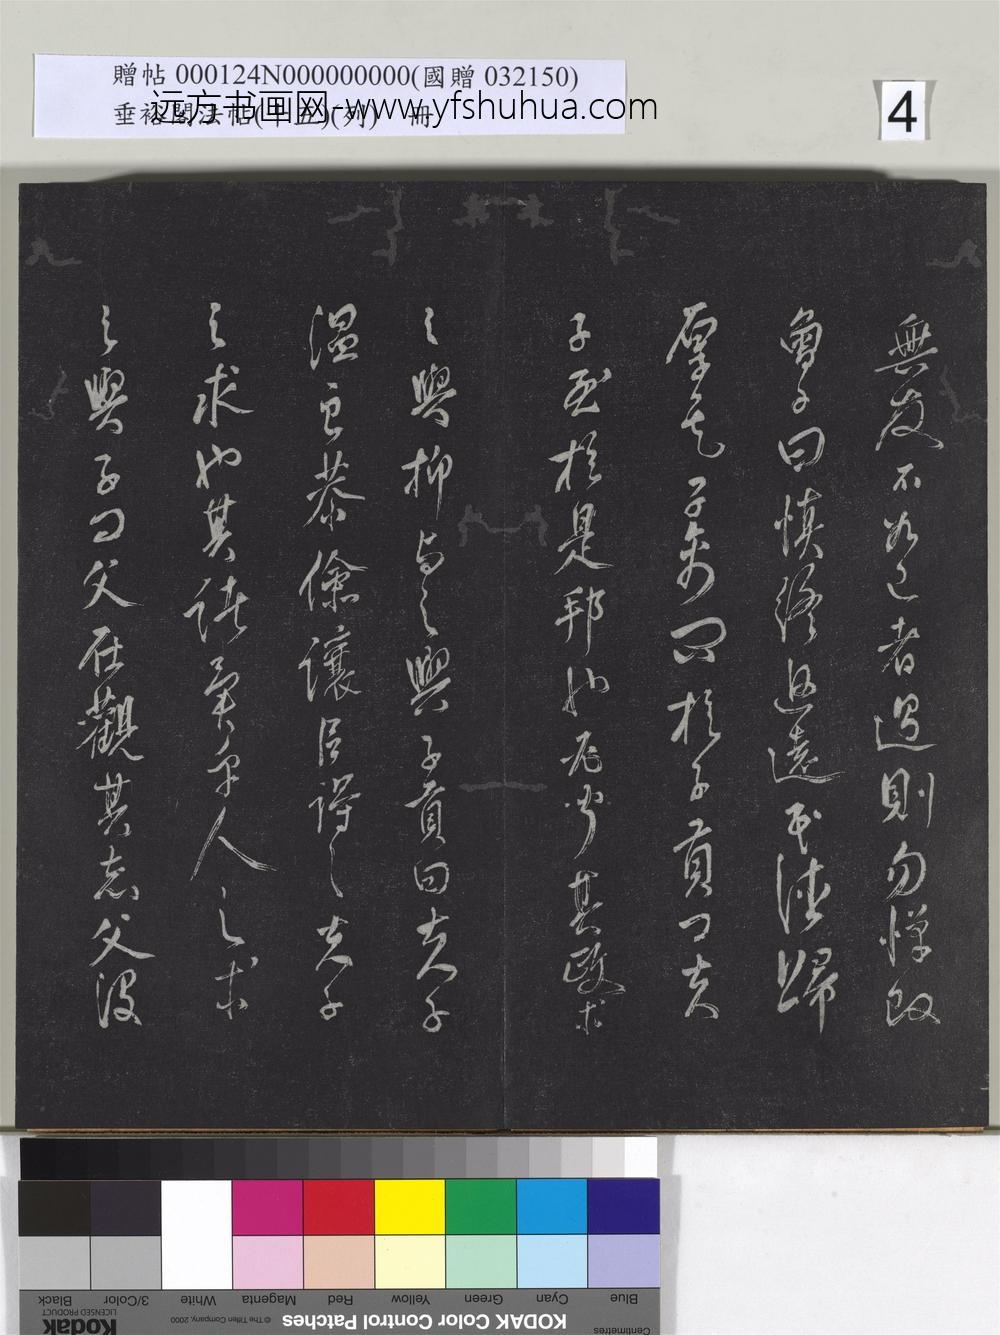 贈帖 000124N000000000(國贈 032150)
垂裕閣法帖(十五)(列)一冊
远方书画网-www.yfshuhua.com
4
無友不如己者過則勿憚改
曾子曰慎終追遠民德歸
厚矣子禽問於子貢曰夫
子至於是邦也必聞其政求
之與抑与之與子貢曰夫子
温良恭儉讓以得之夫子
之求也其諸異乎人之求
之與子曰父在觀其志父沒
Blue Cyan Green Yellow Red Magenta White 3/Color Black
Centimetres
KODAK Color Control Patches
© The Tiffen Company, 2000
Kodak
LICENSED PRODUCT